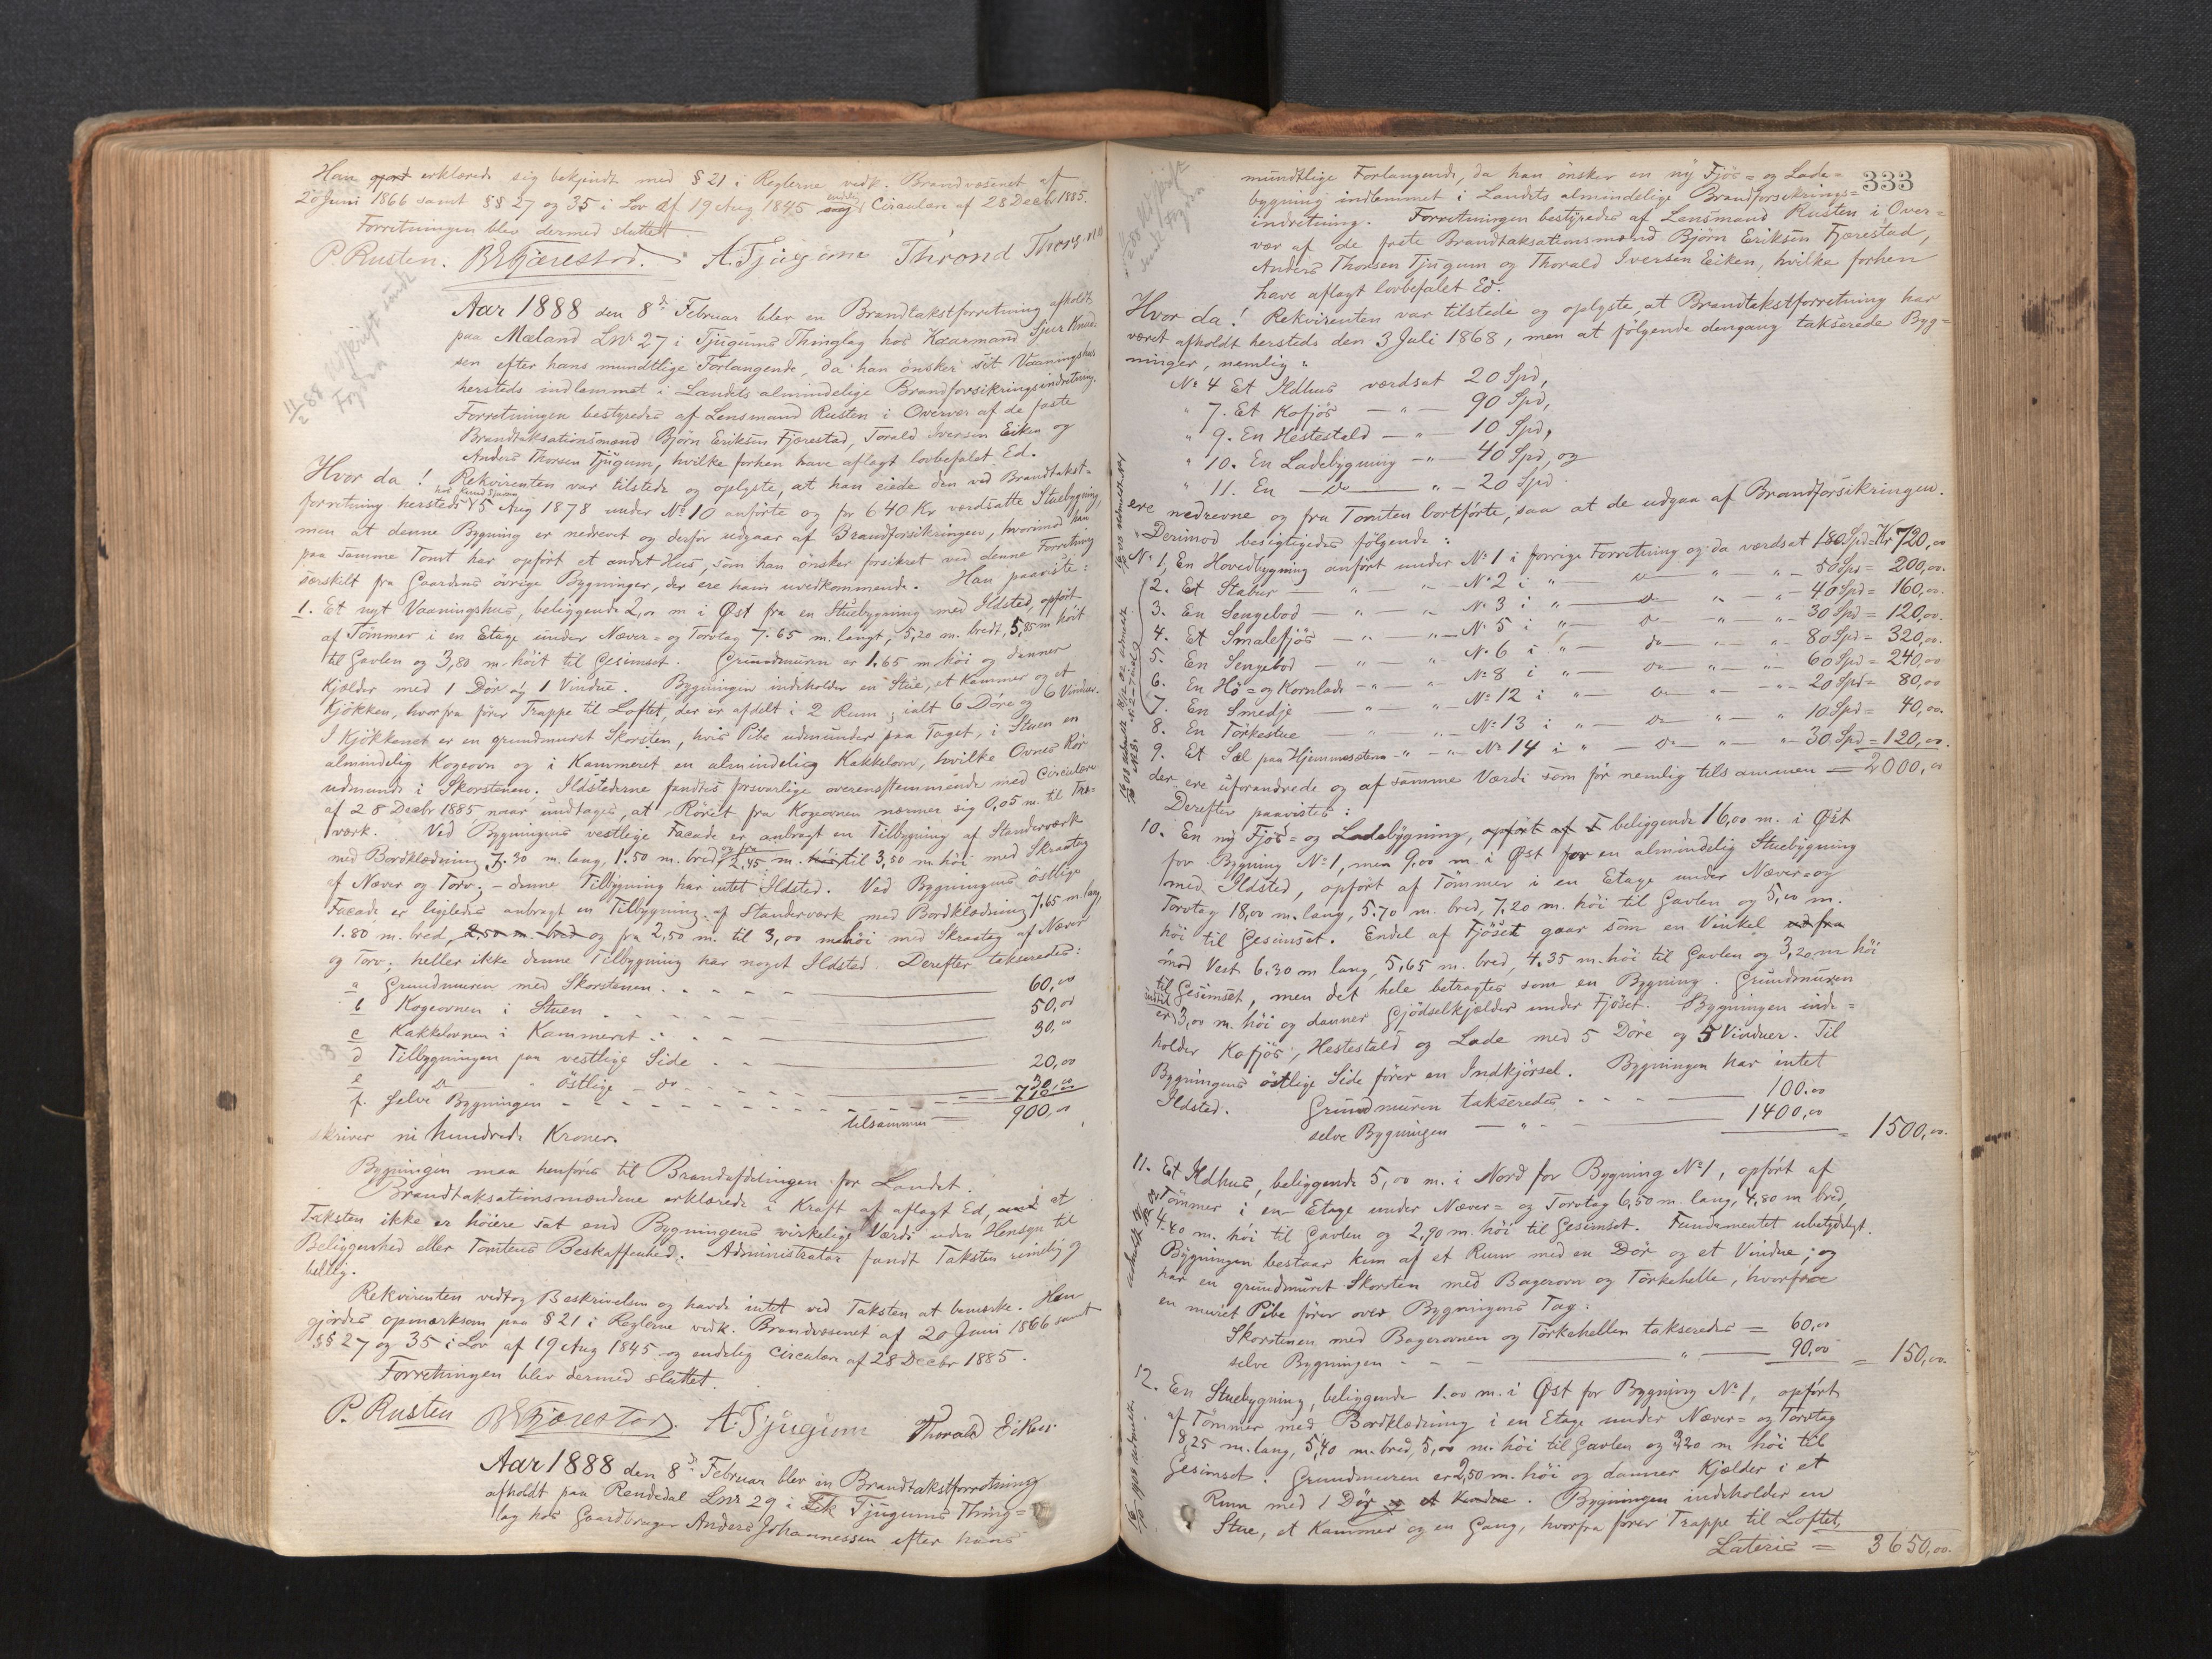 Han gjord erklærede sig bekjendt med § 21 i Reglerne vedk. Brandvæsenet af
20 Juni 1866 samt §§ 27 og 35 i Lov af 19 Aug 1845 og endelig Circulære af 28 Decbr 1885.
Forretningen blev dermed sluttet.
P. Rusten. BEFjærestad. A. Tjugum Thrond Thorsen
11/2 88 Udskrift sendt Fogden
Aar 1888 den 8de Februar blev en Brandtakstforretning afholdt
paa Mæland Lnr 27 i Tjugums Thinglag hos Kaarmand Sjur Knud-
sen efter hans mundtlige Forlangende, da han ønsker sit Vaaningshus
hersteds indlemmet i Landets almindelige Brandforsikringsindretning.
Forretningen bestyredes af Lensmand Rusten i Overvær af de faste
Brandtaksationsmænd Bjørn Eriksen Fjærestad, Torald Iversen Eiken og
Anders Thorsen Tjugum, hvilke forhen have aflagt lovbefalet Ed.
Hvor da! Rekvirenten var tilstede og oplyste, at han eiede den ved Brandtakst-
forretning hersteds hos Knud Sjursen 15 Aug 1878 under No 10 anførte og for 640 Kr værdsatte Stuebygning,
men at denne Bygning er nedrevet og derfor udgaar af Brandforsikringen, hvorimod han
paa samme Tomt har opført et andet Hus, som han ønsker forsikret ved denne Forretning
særskilt fra Gaardens øvrige Bygninger, der ere ham uvedkommende. Han paaviste:
1. Et nyt Vaaningshus, beliggende 2,00 m i Øst fra en Stuebygning med Ildsted, opført
af Tømmer i en Etage under Næver- og Torvtag 7.65 m. langt, 5,20 m. bredt, 5,85 m høit
til Gavlen og 3,80 m. høit til Gesimset. Grundmuren er 1.65 m høi og danner
Kjælder med 1 Dør og 1 Vindue. Bygningen indeholder en Stue, et Kammer og et
Kjøkken, hvorfra fører Trappe til Loftet, der er afdelt i 2 Rum; ialt 6 Døre og 6 Vinduer.
I Kjøkkenet er en grundmuret Skorsten, hvis Pibe udmunder paa Taget, i Stuen en
almindelig Kogeovn og i Kammeret en almindelig Kakkelovn, hvilke Ovnes Rør
udmunde i Skorstenen. Ildstederne fandtes forsvarlige overensstemmende med Circulære
af 28 Decbr 1885 naar undtages, at Røret fra Kogeovnen nærmer sig 0,05 m. til Træ-
værk. Ved Bygningens vestlige Facade er anbragt en Tilbygning af Standerværk
med Bordklædning 7.30 m. lang, 1.50 m. bred, og fra 2,45 m. høi til 3,50 m. høi med Skraatag
af Næver og Torv; - denne Tilbygning har intet Ildsted. Ved Bygningens østlige
Facade er ligeledes anbragt en Tilbygning af Standerværk med Bordklædning 7,65 m. lang,
1.80 m. bred, 2,50 m. bred og fra 2,50 m. til 3,00 m høi med Skraatag af Næver
og Torv; heller ikke denne Tilbygning har noget Ildsted. Derefter taxeredes:
a Grundmuren med Skorstenen 60,00
b Kogeovnen i Stuen 50,00
c Kakkelovnen i Kammeret 30,00
d Tilbygningen paa vestlige Side 20,00
e Do " østlige - do 30,00
f. selve Bygningen 710,00
tilsammen 900,00
skriver ni hundrede Kroner.
Bygningen maa henføres til Brandafdelingen for Landet.
Brandtaksationsmændene erklærede i Kraft af aflagt Ed, at
Taksten ikke er høiere sat end Bygningens virkelige Værdi uden Hensyn til
Beliggenhed eller Tomtens Beskaffenhed. Administrator fandt Taksten rimelig og
billig.
Rekvirenten vedtog Beskrivelsen og havde intet ved Taksten at bemærke. Han
gjordes opmærksom paa § 21 i Reglerne vedk. Brandvæsenet af 20 Juni 1866 samt
§§ 27 og 35 i Lov af 19 Aug 1845 og endelig Circulære af 28 Decbr 1885.
Forretningen blev dermed sluttet.
P. Rusten BEFjærestad. A. Tjugum Thorald Eiken
Aar 1888 den 8de Februar blev en Brandtakstforretning
afholdt paa Rendedal Lnr 29 i Tjugums Thing-
lag hos Gaardbruger Anders Johannessen efter hans
333
mundtlige Forlangende, da han ønsker en ny Fjøs- og Lade-
bygning indlemmet i Landets almindelige Brandforsikrings-
indretning. Forretningen bestyredes af Lensmand Rusten i Over-
vær af de faste Brandtaksationsmænd Bjørn Eriksen Fjærestad,
Anders Thorsen Tjugum og Thorald Iversen Eiken, hvilke forhen
have aflagt lovbefalet Ed.
Hvor da! Rekvirenten var tilstede og oplyste, at Brandtakstforretning har
været afholdt hersteds den 3 Juli 1868, men at følgende dengang takserede Byg-
ninger, nemlig:
No 4 Et Ildhus værdsat 20 Spd,
" 7. Et Kofjøs — " — 90 Spd,
" 9. En Hestestald — " — 10 Spd,
" 10. En Ladebygning — " — 40 Spd, og
" 11. En — Do — " — 20 Spd.
ere nedrevne og fra Tomten bortførte, saa at de udgaa af Brandforsikringen.
Derimod besigtigedes følgende:
No 1, En Hovedbygning anført under No 1 i forrige Forretning og da værdsat 180 Spd = Kr 720,00
2. Et Stabur — " — No 2 i " — Do — " — 50 Spd = 200,00.
3. En Sengebod — " — No 3 i " — Do — " — 40 Spd = 160,00.
4. Et Smalefjøs — " — No 5 i " — Do — " — 30 Spd = 120,00.
5. En Sengebod — " — No 6 i " — Do — " — 80 Spd = 320,00.
6. En Hø- og Kornlade — " — No 8 i " — Do — " — 60 Spd = 240,00
7. En Smedje — " — No 12 i " — Do — " — 20 Spd = 80,00
8. En Tørkestue — " — No 13 i " — Do — " — 10 Spd = 40,00.
9. Et Sæl paa Hjemmesæteren — " — No 14 i " — Do — " — 30 Spd = 120,00.
der ere uforandrede og af samme Værdi som før nemlig tilsammen = 2000,00
Derefter paavistes:
10. En ny Fjøs- og Ladebygning, opført af T beliggende 16,00 m. i Øst
for Bygning No 1, men 9,00 m. i Øst for en almindelig Stuebygning
med Ildsted, opført af Tømmer i en Etage under Næver- og
Torvtag 18,00 m. lang, 5.70 m. bred, 7.20 m. høi til Gavlen og 5,00 m.
høi til Gesimset. Endel af Fjøset gaar som en Vinkel ud fra
mod Vest 6.30 m lang, 5,65 m. bred, 4.35 m. høi til Gavlen og 3,20 m høi
til Gesimset, men det hele betragtes som en Bygning. Grundmuren
er indtil 3,00 m. høi og danner Gjødselkjælder under Fjøset. Bygningen inde-
holder Kofjøs, Hestestald og Lade med 5 Døre og 5 Vinduer. Til
Bygningens østlige Side fører en Indkjørsel. Bygningen har intet
Ildsted. Grundmuren takseredes 100.00
selve Bygningen — " — 1400,00 = 1500,00.
11. Et Ildhus, beliggende 5,00 m. i Nord for Bygning No 1, opført af
Tømmer i en Etage under Næver- og Torvtag 6,50 m. lang, 4,80 m bred,
4.40 m. høi til Gavlen og 2,90 m. høi til Gesimset. Fundamentet ubetydeligt.
Bygningen bestaar kun af et Rum med en Dør og et Vindue; og
har en grundmuret Skorsten med Bagerovn og Tørkehelle, hvorfra
en muret Pibe fører over Bygningens Tag.
Skorstenen med Bagerovnen og Tørkehellen takseredes = 60,00
selve Bygningen — " — 90,00 = 150,00.
12. En Stuebygning, beliggende 1.00 m. i Øst for Bygning No 1, opført
af Tømmer med Bordklædning i en Etage under Næver- og Torvtag
8,25 m. lang, 5,40 m. bred, 5,00 m. høi til Gavlen og 3,20 m høi til
Gesimset. Grundmuren er 2,50 m. høi og danner Kjælder i et
Rum med 1 Dør og et Vindue. Bygningen indeholder en
Stue, et Kammer og en Gang, hvorfra fører Trappe til Loftet,
Lateris = 3650,00.